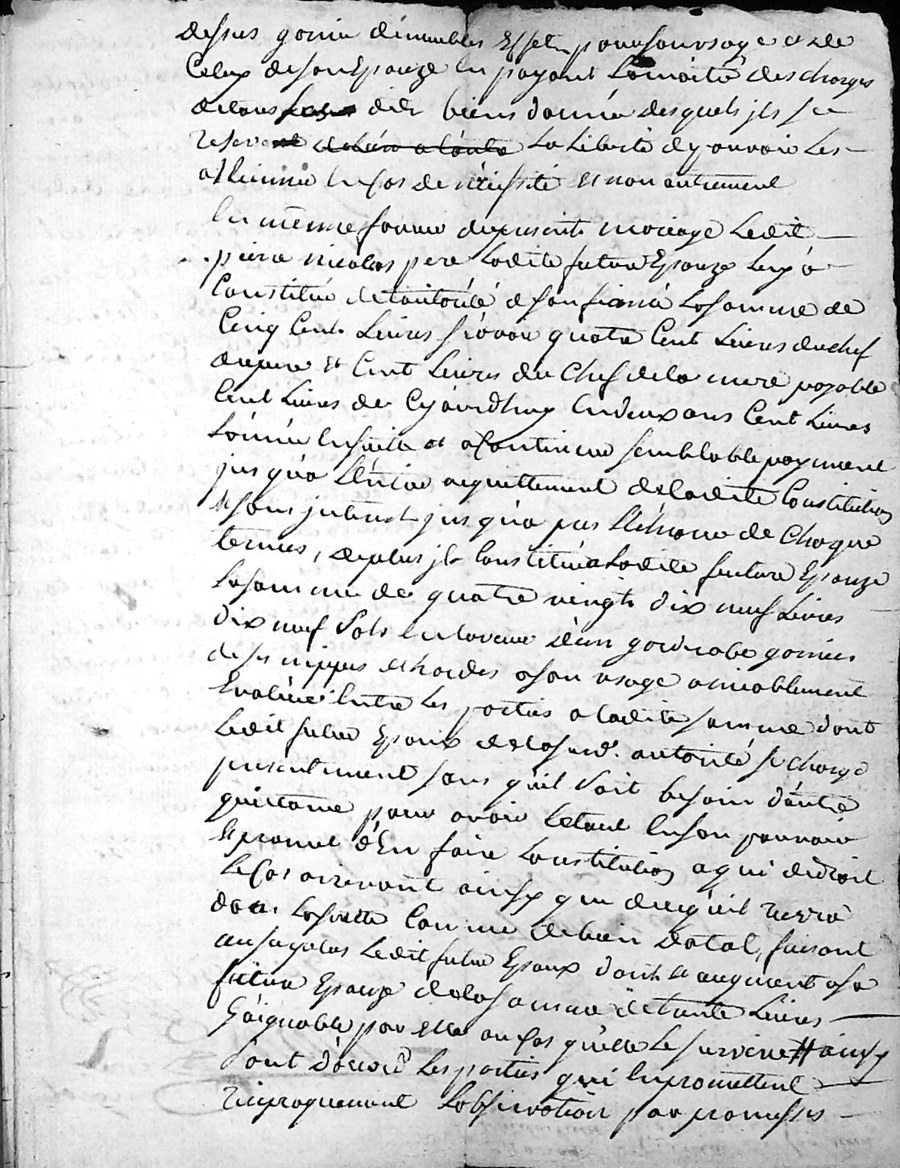 dessus garnie de meubles Effets pour son usage et de
Celuy de son Epouze En payant la moitié des charges
dettes et biens donnés desquels jls se
reservent la liberté de pouvoir les
alliener En Cas de nécessité et non autrement
En même faveur du present mariage Ledit
pierre nicolas pere Ladite future Epouze Luy a
Constitué de la somme de
Cinq Cent Livres sçavoir quatre Cent Livres du chef
du pere et Cent Livres du Chef de la mere payable
Cent Livres de Cejourdhuy En deux ans Cent Livres
Lannée Ensuitte et a Continuer semblable payement
jusqua L'Entier aquittement de ladite Constitution
et sans jnterest jusqua pas L'échance de Chaque
terme, de plus jl Constitue a Ladite future Epouze
La somme de quatre vingts dix neuf Livres
dix neuf sols En la valeur d'un garderobe garnie
de ses nippes et hardes a son usage amiablement
Evaluée Entre Les parties a ladite somme dont
Ledit futur Epoux de lad. autorité se charge
presentement sans qu'il soit besoin d'autre
quittance pour avoir letout En son pouvoir
et promet d'En faire Restitution a qui de droit
Le Cas arrivant ainsy que de ce qu'il recevra
dans La suitte Comme de bien dotal, faisant
Ledit futur Epoux don et augment a sa
future Epouze de la somme de trante Livres
Gaignable par elle au Cas qu'elle Le survive # ainsy
sont d'accord Les parties qui En promettent
reciproquement L'observation par promesses